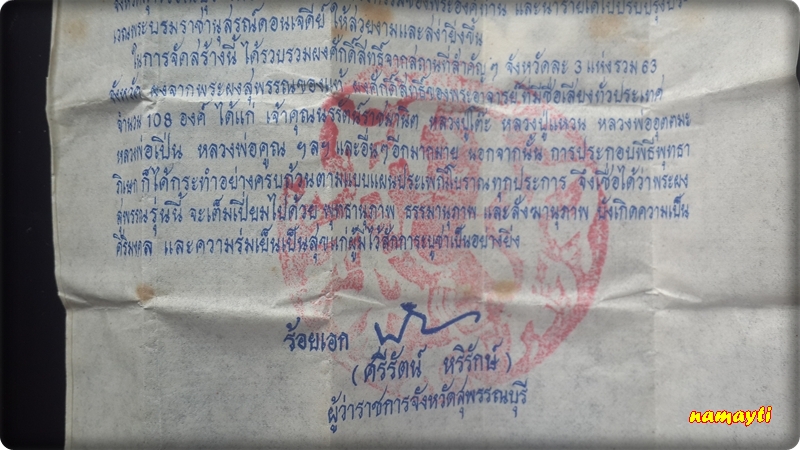 เวณพระบรมราชานุสรณ์ดอนเจดีย์ ให้สวยงามและสง่ายิ่งขึ้น
ในการจัดสร้างนี้ ได้รวบรวมผงศักดิ์สิทธิ์จากสถานที่สำคัญๆ จังหวัดละ 3 แห่งรวม 63
จังหวัด ผงจากพระผงสุพรรณของแท้ ผงศักดิ์สิทธิ์ของพระอาจารย์ ที่มีชื่อเสียงทั่วประเทศ
จำนวน 108 องค์ ได้แก่ เจ้าคุณนรรัตน์ราชมานิต หลวงปู่โต๊ะ หลวงปู่แหวน หลวงพ่ออุตตมะ
หลวงพ่อเปิ่น หลวงพ่อคูณ ฯลฯ และอื่นๆอีกมากมาย นอกจากนั้น การประกอบพิธีพุทธา
ภิเษก ก็ได้กระทำอย่างครบถ้วนตามแบบแผนประเพณีโบราณทุกประการ จึงเชื่อได้ว่าพระผง
สุพรรณรุ่นนี้ จะเต็มเปี่ยมไปด้วย พุทธานุภาพ ธรรมานุภาพ และสังฆานุภาพ บังเกิดความเป็น
ศิริมงคล และความร่มเย็นเป็นสุขแก่ผู้มีไว้สักการะบูชาเป็นอย่างยิ่ง
ร้อยเอก
(ศรีรัตน์ หริรักษ์)
ผู้ว่าราชการจังหวัดสุพรรณบุรี
namayti